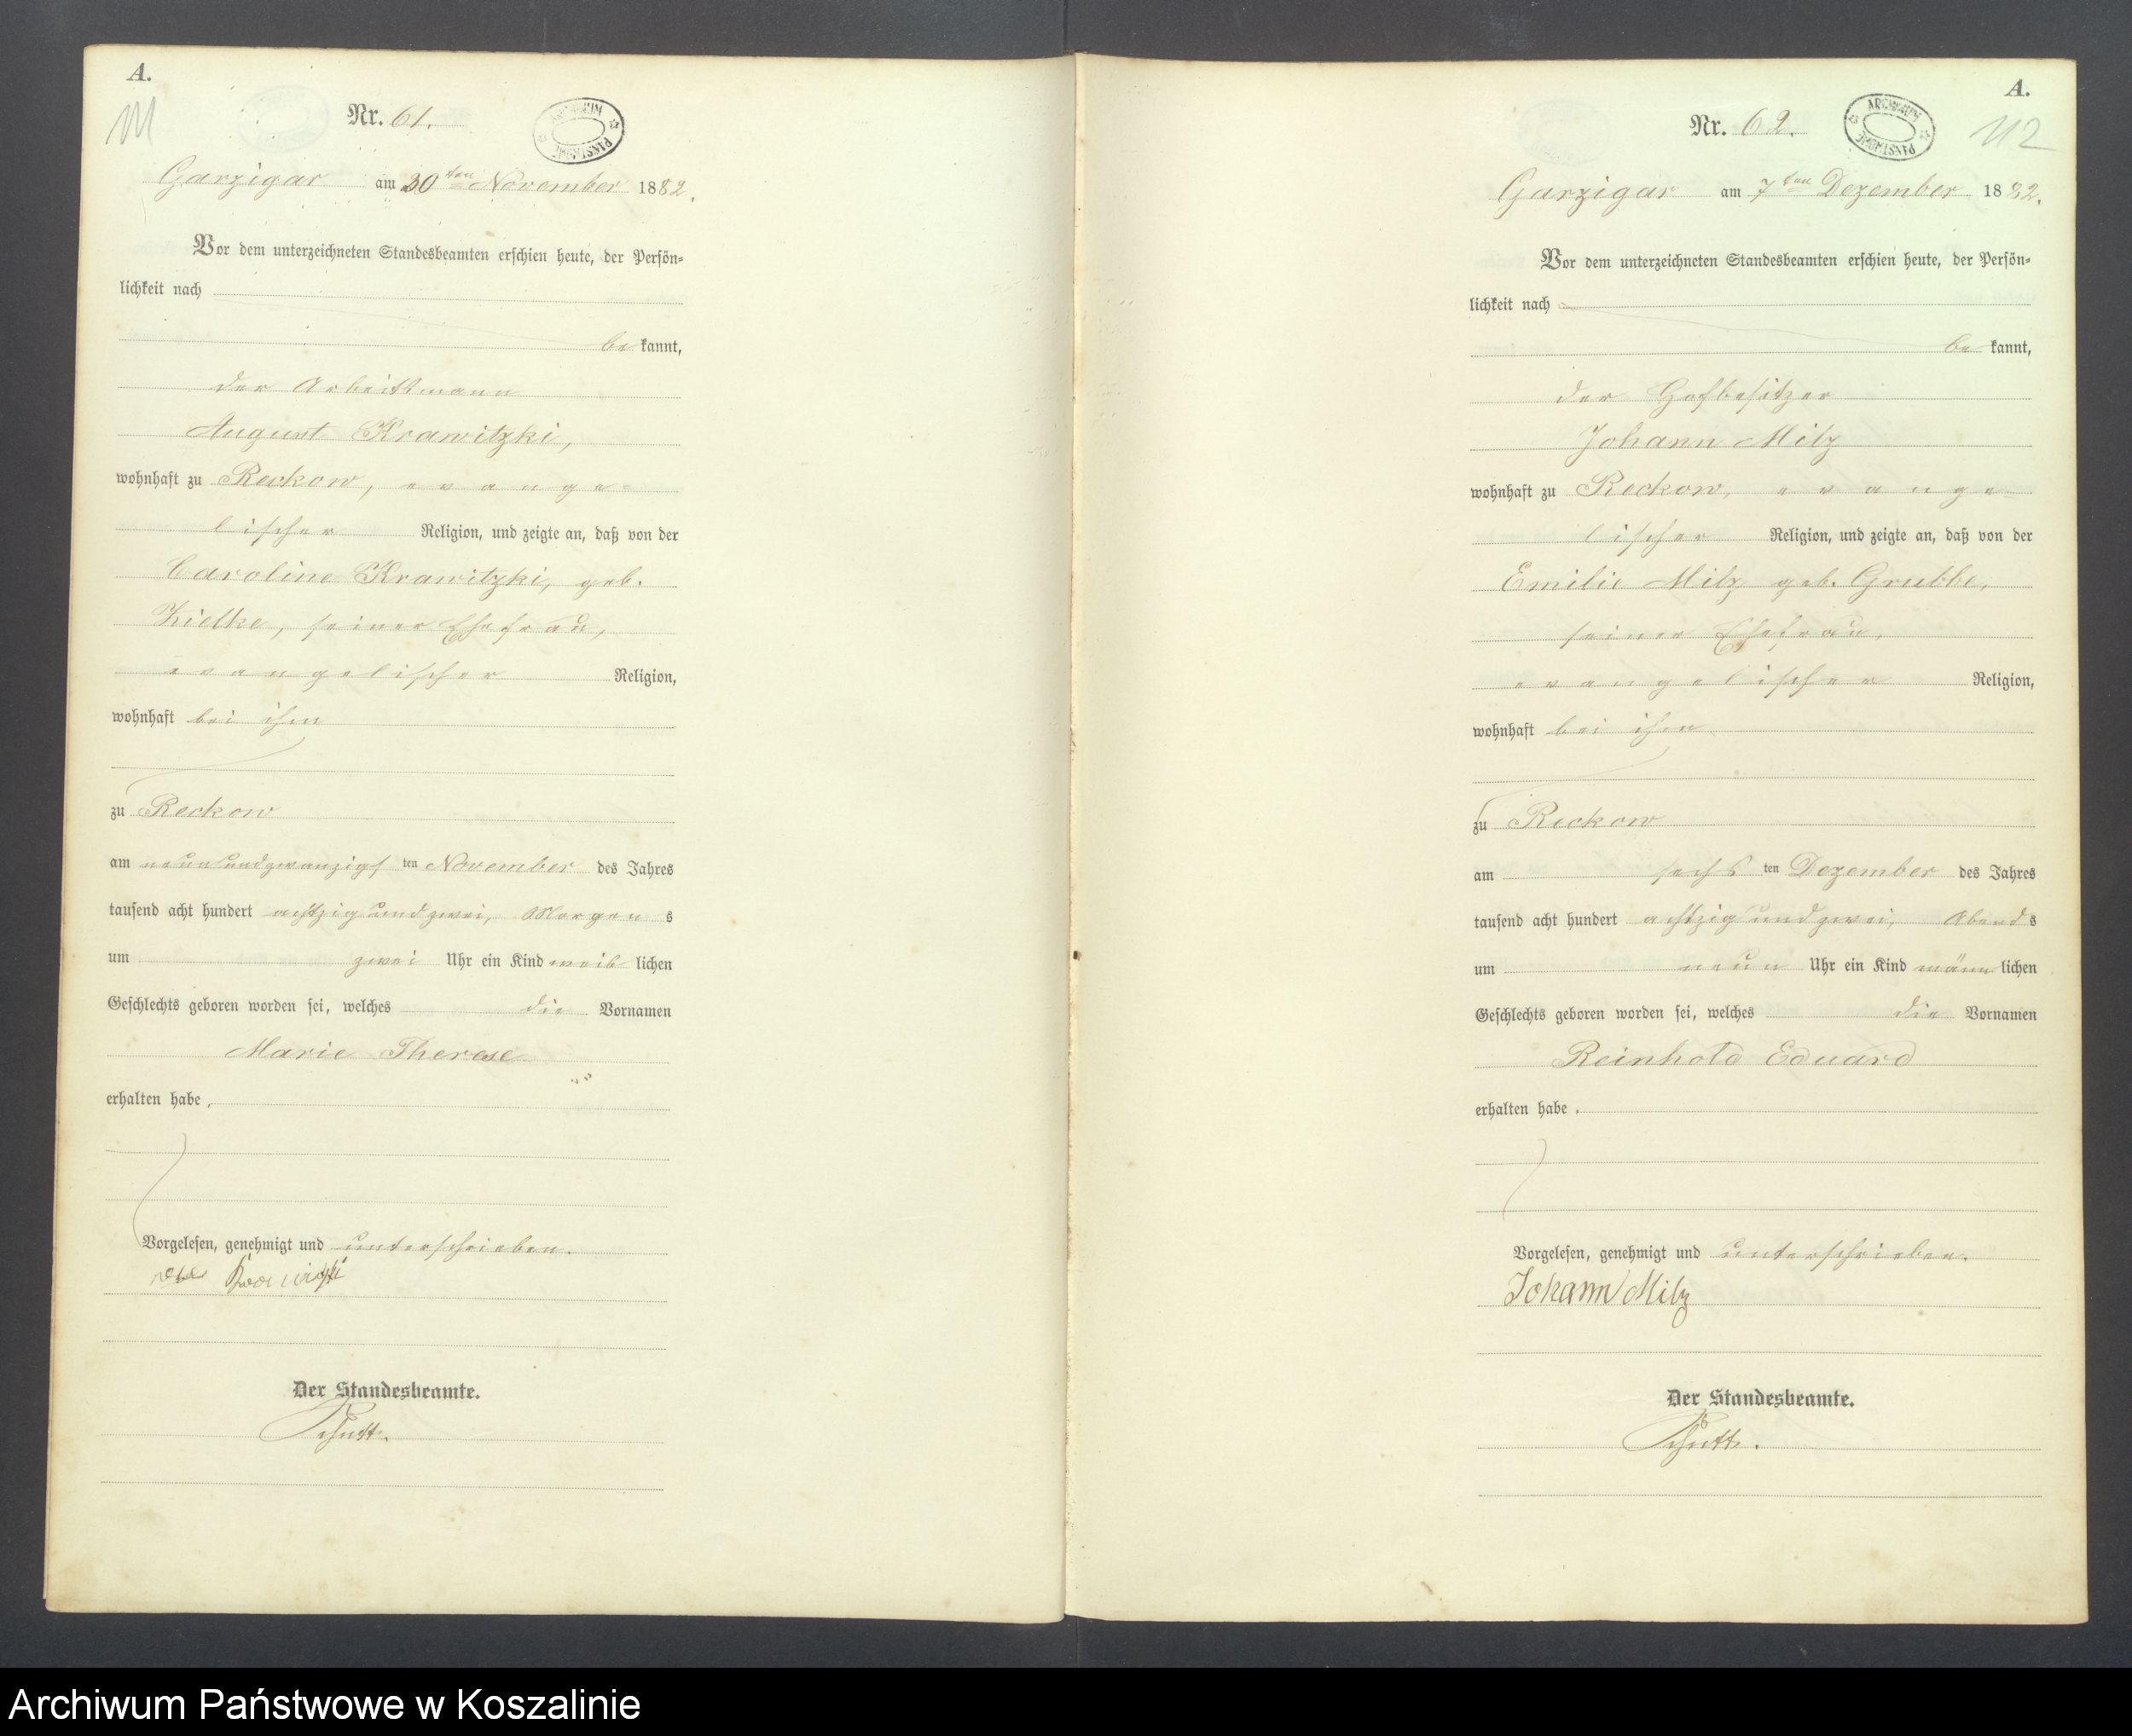 A.
111
Nr. 61.
ARCHIWUM PAŃSTWOWE
Garzigar am 30ten November 1882.
Vor dem unterzeichneten Standesbeamten erschien heute, der Persön-
lichkeit nach
be kannt,
der Arbeitsmann
August Krawitzki,
wohnhaft zu Reckow, evange-
lischer Religion, und zeigte an, daß von der
Caroline Krawitzki, geb.
Kielke, seiner Ehefrau,
evangelischer Religion,
wohnhaft bei ihm
zu Reckow
am neunundzwanzigs ten November des Jahres
tausend acht hundert achtzig und zwei, Morgen s
um zwei Uhr ein Kind weib lichen
Geschlechts geboren worden sei, welches die Vornamen
Marie Therese
erhalten habe.
Vorgelesen, genehmigt und unterschrieben.
Der Standesbeamte.
A.
112
Nr. 62.
ARCHIWUM PAŃSTWOWE
Garzigar am 7ten Dezember 1882.
Vor dem unterzeichneten Standesbeamten erschien heute, der Persön-
lichkeit nach
be kannt,
der Hofbesitzer
Johann Milz
wohnhaft zu Reckow, evange-
lischer Religion, und zeigte an, daß von der
Emilie Milz geb. Grubbe,
seiner Ehefrau,
evangelischer Religion,
wohnhaft bei ihm
zu Reckow
am sechs ten Dezember des Jahres
tausend acht hundert achtzig und zwei, Abend s
um neun Uhr ein Kind männ lichen
Geschlechts geboren worden sei, welches die Vornamen
Reinhold Eduard
erhalten habe.
Vorgelesen, genehmigt und unterschrieben.
Johann Milz
Der Standesbeamte.
Archiwum Państwowe w Koszalinie